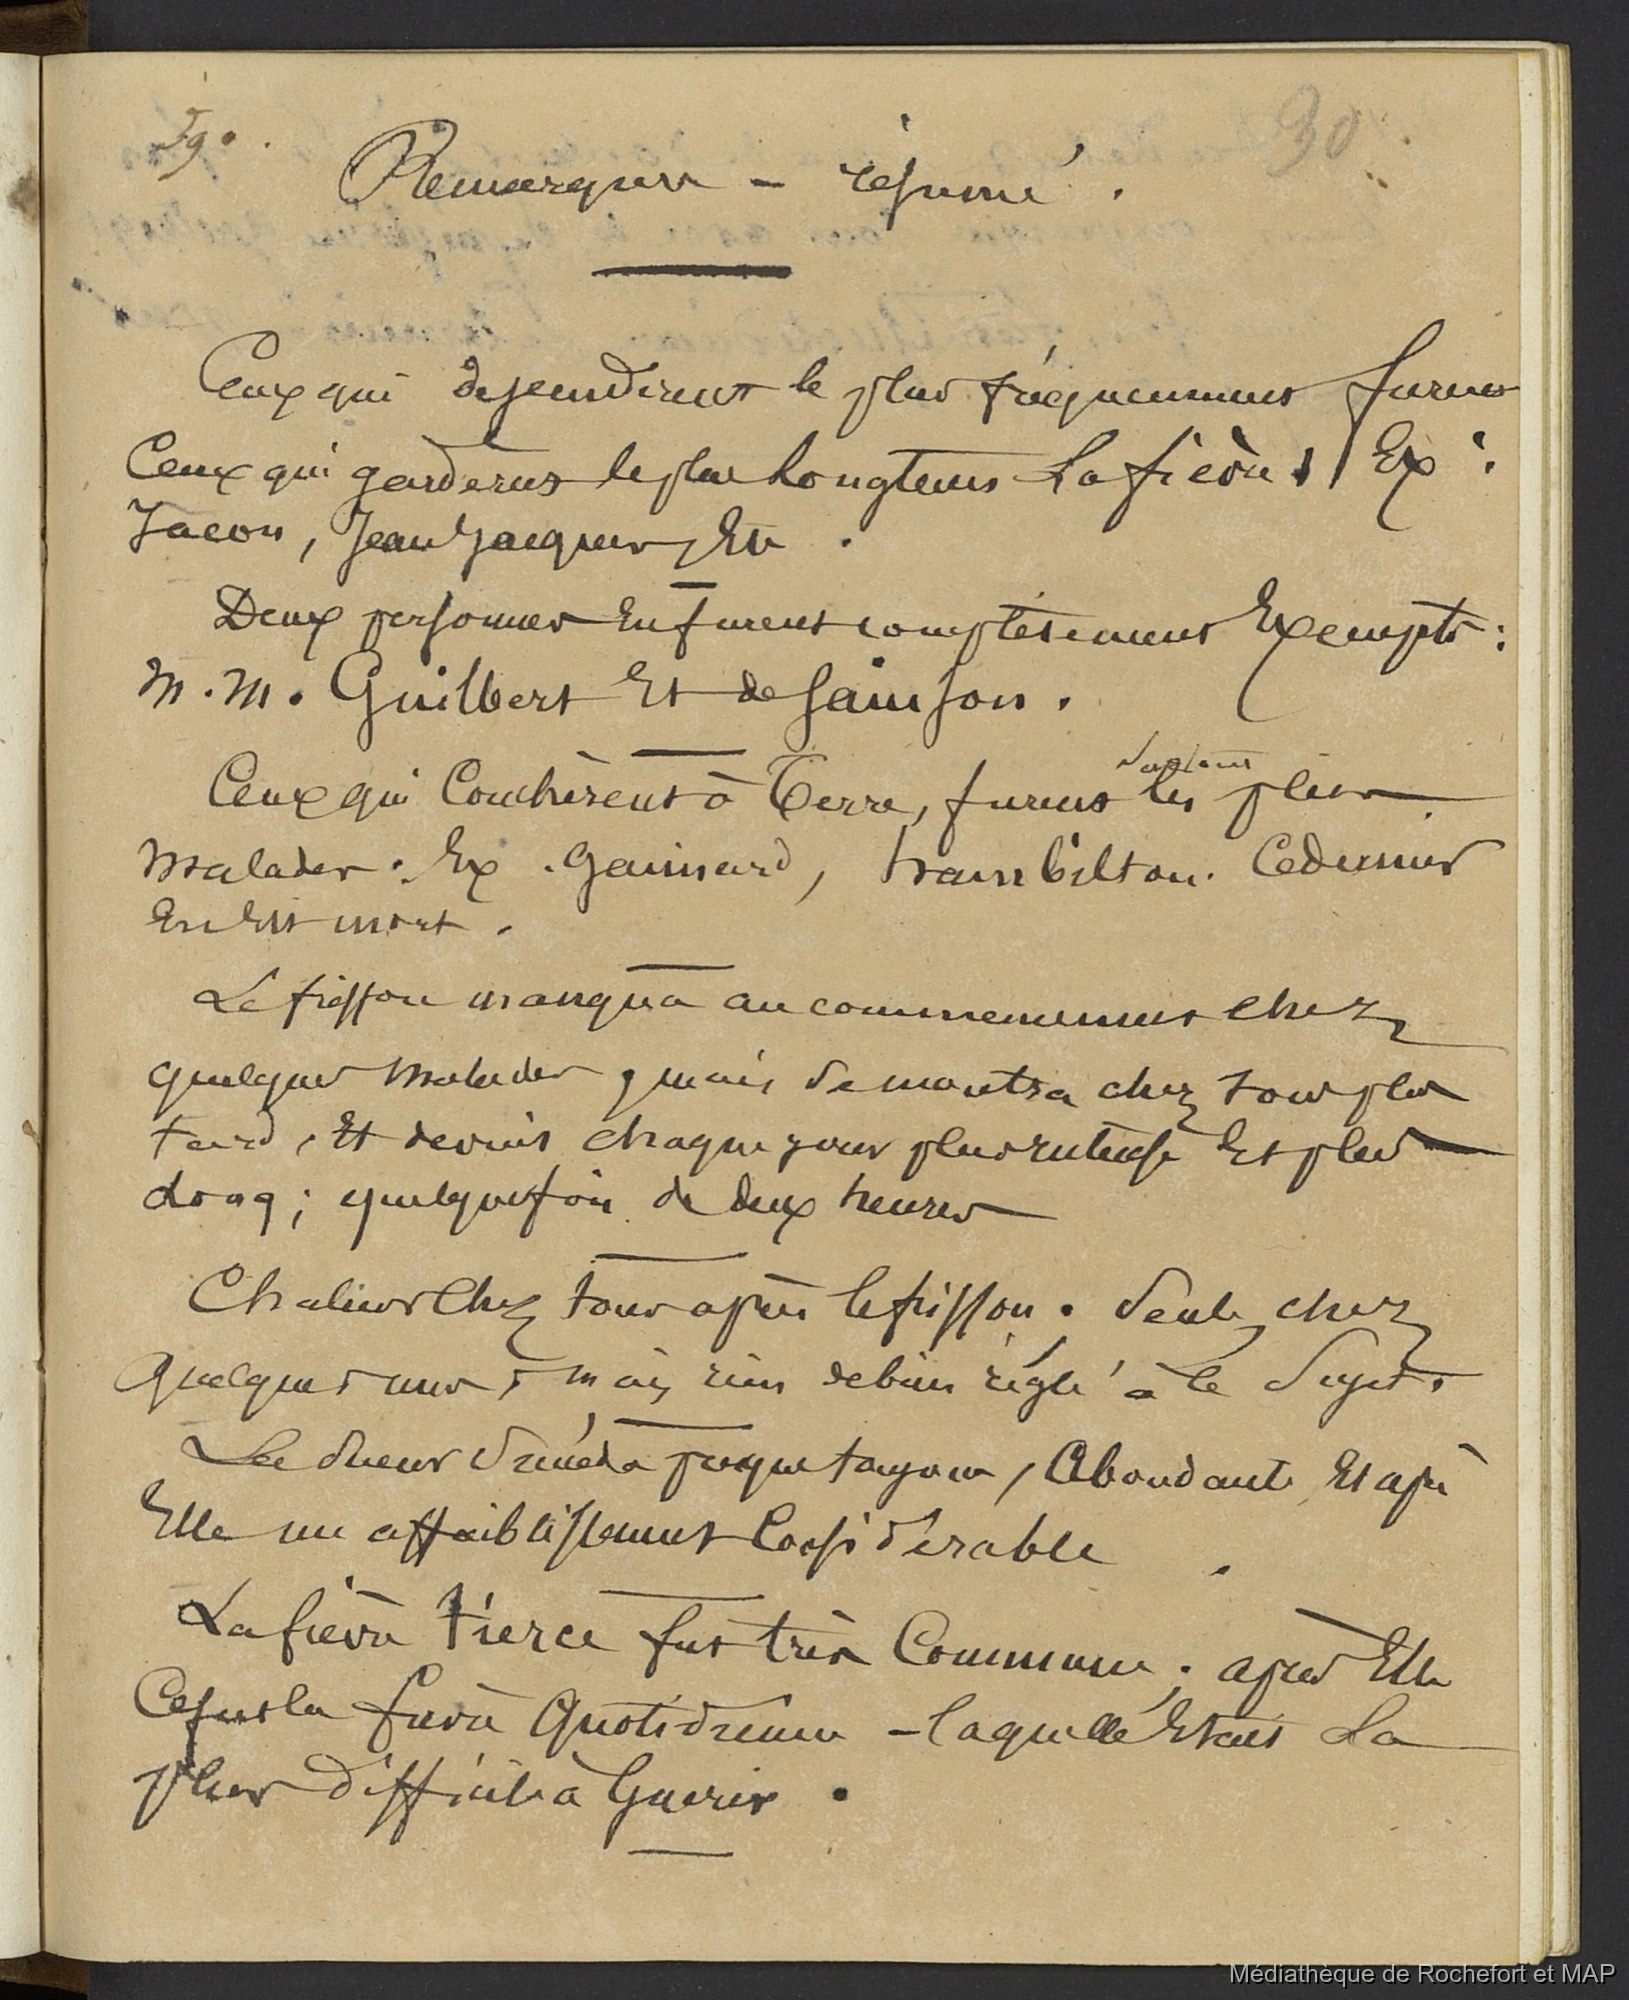 59.
30
Remarques – résumé.
Ceux qui descendirent le plus fréquemment furent
Ceux qui gardèrent le plus longtems la fièvre, Ex:
Jacon, Jean Jacques, Etc.
Deux personnes En furent complètement Exempts:
M.M. Guilbert Et de Sainson.
Surtout
Ceux qui Couchèrent à Terre, furent les plus
Malades. Ex. Gaimard, hambilton. Ce dernier
En Est mort.
Le frisson manqua au commencement chez
quelques Malades, mais se montra chez tous plus
tard, Et devint chaque jour plus intense Et plus
long; quelquefois de deux heures
Chaleur Chez tous après le frisson. Seule chez
quelques uns, mais rien de bien réglé à ce Sujet.
La Sueur Succéda presque toujours, Abondante, Et après
Elle un affaiblissement Considérable.
La fièvre tierce fut très Commune; après Elle
Ce fut la fièvre Quotidienne – laquelle Etait la
plus difficile à Guérir.
Médiathèque de Rochefort et MAP